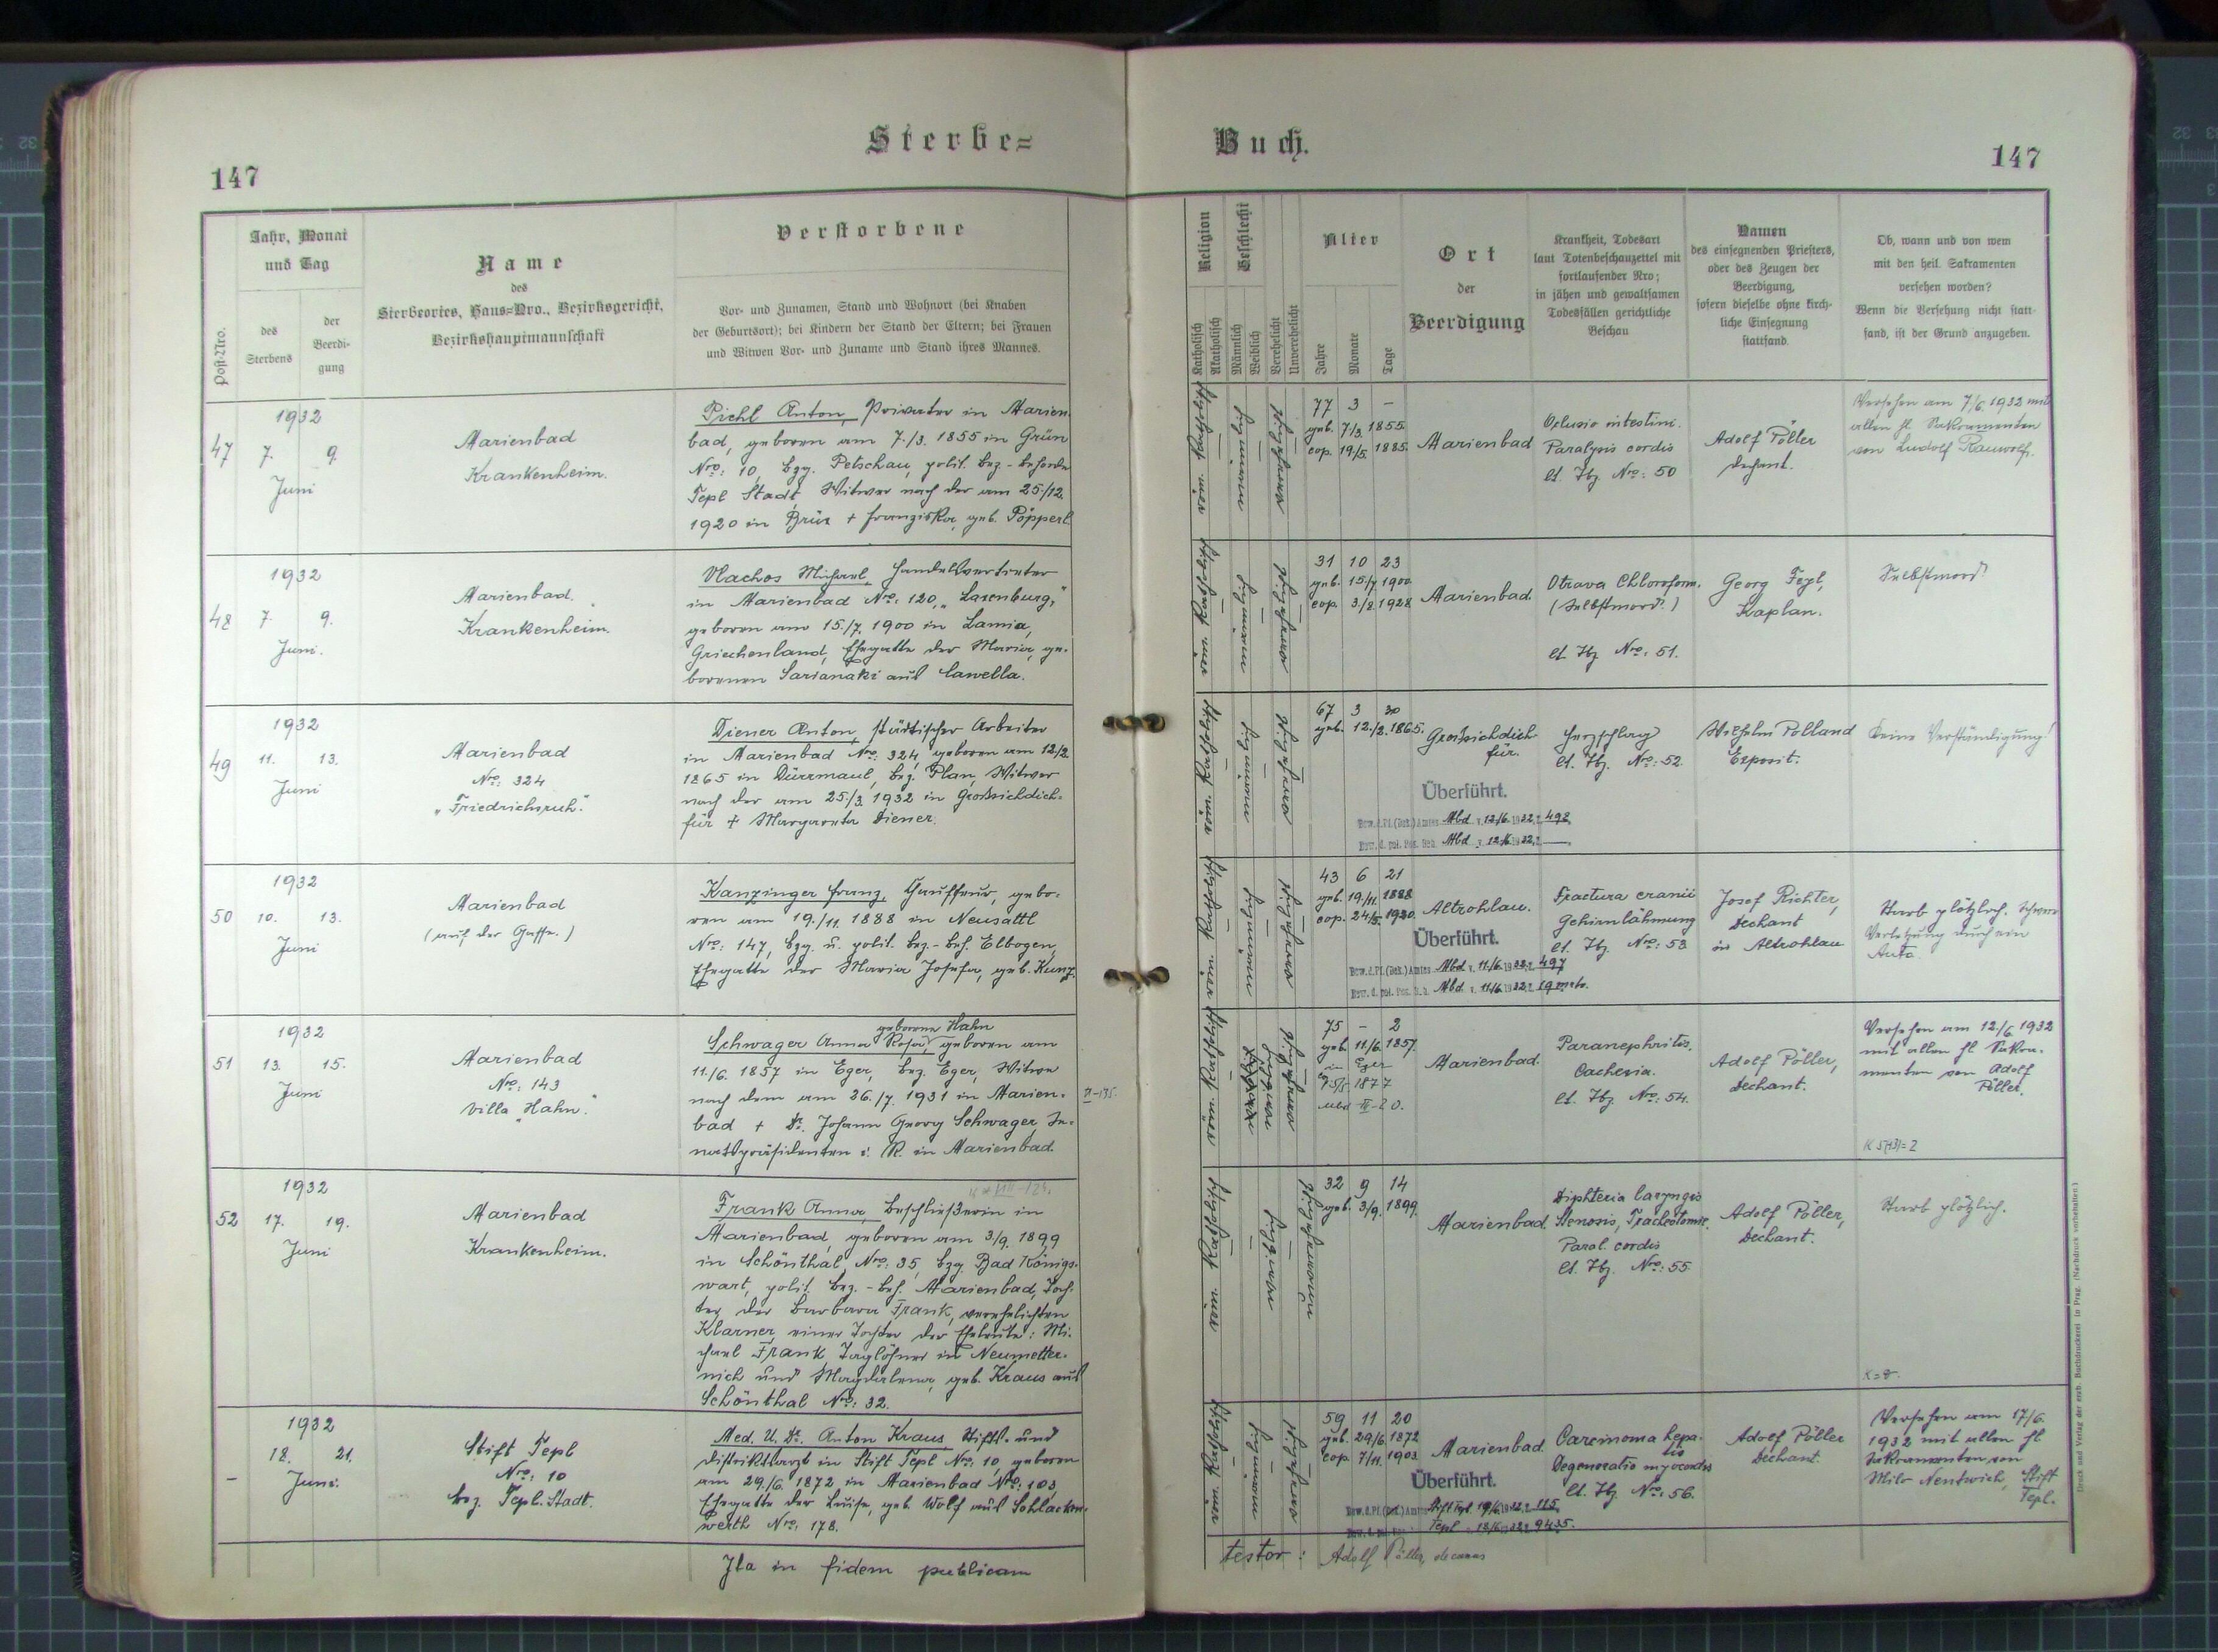 Sterbe=
147
Post-Nro.
Jahr, Monat
und Tag
des
Sterbens
der
Beerdi-
gung
Name
des
Sterbeortes, Haus-Nro., Bezirksgericht,
Bezirkshauptmannschaft
Verstorbene
Vor- und Zunamen, Stand und Wohnort (bei Knaben
der Geburtsort); bei Kindern der Stand der Eltern; bei Frauen
und Witwen Vor- und Zuname und Stand ihres Mannes.
47
1932
7. 9.
Juni
Marienbad
Krankenheim.
Piehl Anton, Privater in Marien-
bad, geboren am 7./3. 1855 in Grün
Nro: 10, bzg. Petschau, polit. bez.-behörde
Tepl Stadt, Witwer nach der am 25./12.
1920 in Grün + Franziska, geb. Pöpperl.
48
1932
7. 9.
Juni.
Marienbad.
Krankenheim.
Vlachos Michael, Handelsvertreter
in Marienbad Nro: 120, „Laxenburg,"
geboren am 15./7. 1900 in Lamia,
Griechenland, Ehegatte der Maria, ge-
borenen Sarianaki aus Cawella.
49
1932
11. 13.
Juni
Marienbad
Nro: 324
„Friedrichsruh."
Diener Anton, städtischer Arbeiter
in Marienbad Nro: 324, geboren am 12./2.
1865 in Dürrmaul, bez. Plan, Witwer
nach der am 25./3. 1932 in Großsichdich-
für + Margareta Diener.
50
1932
10. 13.
Juni
Marienbad
(auf der Gasse.)
Kanzinger Franz, Chauffeur, gebo-
ren am 19./11. 1888 in Neusattl
Nro: 147, bzg. u. polit. bez.-beh. Elbogen,
Ehegatte der Maria Josefa, geb. Kunz.
51
1932
13. 15.
Juni
Marienbad
Nro: 143
Villa „Hahn."
geborene Hahn
Schwager Anna Rosa, geboren am
11./6. 1857 in Eger, bez. Eger, Witwe
nach dem am 26./7. 1931 in Marien-
bad + Dr. Johann Georg Schwager, Se-
natspräsidenten i. R. in Marienbad.
52
1932
17. 19.
Juni
Marienbad
Krankenheim.
Frank Anna, Beschließerin in
Marienbad, geboren am 3/9. 1899
in Schönthal Nro: 35, bzg. Bad Königs-
wart, polit. bez.-beh. Marienbad, Toch-
ter der Barbara Frank, verehelichten
Klarner, einer Tochter der Eheleute: Mi-
chael Frank Taglöhner in Neumetter-
nich und Magdalena, geb. Kraus aus
Schönthal Nro: 32.
–
1932
18. 21.
Juni.
Stift Tepl
Nro: 10
bez. Tepl-Stadt.
Med. U. Dr. Anton Kraus, Stifts- und
Distriktsarzt in Stift Tepl Nro: 10, geboren
am 29./6. 1872 in Marienbad Nro: 103,
Ehegatte der Luise, geb. Wolf aus Schlacken-
werth Nro: 178.
Ita in fidem publicam
Buch.
147
Religion
Katholisch
Akatholisch
Geschlecht
Männlich
Weiblich
Verehelicht
Unverehelicht
Alter
Jahre
Monate
Tage
Ort
der
Beerdigung
Krankheit, Todesart
laut Totenbeschauzettel mit
fortlaufender Nro;
in jähen und gewaltsamen
Todesfällen gerichtliche
Beschau
Namen
des einsegnenden Priesters,
oder des Zeugen der
Beerdigung,
sofern dieselbe ohne kirch-
liche Einsegnung
stattfand.
Ob, wann und von wem
mit den heil. Sakramenten
versehen worden?
Wenn die Versehung nicht statt-
fand, ist der Grund anzugeben.
röm. Katholisch
männlich
verehelicht
77 3 –
geb. 7/3. 1855.
cop. 19/5. 1885.
Marienbad
Oclusio intestini.
Paralysis cordis
lt. Tbz. Nro: 50
Adolf Pöller
Dechant.
Versehen am 7/6. 1932 mit
allen hl. Sakramenten
von Ludolf Rauwolf.
röm. Katholisch
männlich
verehelicht
31 10 23
geb. 15/7. 1900
cop. 3/2. 1928
Marienbad.
Otrava Chloroform.
(Selbstmord.)
lt. Tbz. Nro: 51.
Georg Fegl,
Kaplan.
Selbstmord!
röm. Katholisch
männlich
verehelicht
67 3 30
geb. 12./2. 1865.
Großsichdich-
für.
Überführt.
Mbd v. 12/6. 1932 z. 498
Mbd v. 12/6. 1932
Herzschlag
lt. Tbz. Nro: 52.
Wilhelm Polland
Exposit.
Keine Verständigung!
röm. Katholisch
männlich
verehelicht
43 6 21
geb. 19./11. 1888
cop. 24/5. 1920.
Altrohlau.
Überführt.
Mbd v. 11/6. 1932 z. 497
Mbd v. 11/6. 1932
Fractura cranii
Gehirnlähmung
lt. Tbz. Nro: 53
Josef Richter,
Dechant
in Altrohlau
Starb plötzlich. Schwere
Verletzung durch ein
Auto.
röm. Katholisch
weiblich
verehelicht
75 – 2
geb. 11/6. 1857.
in Eger
Marienbad.
Paranephritis.
Cachexia.
lt. Tbz. Nro: 54.
Adolf Pöller,
Dechant.
Versehen am 12./6. 1932
mit allen hl. Sakra-
menten von Adolf
Pöller.
röm. Katholisch
weiblich
unverehelicht
32 9 14
geb. 3/9. 1899.
Marienbad.
Diphteria laryngis
Stenosis, Tracheotomie.
Paral. cordis
lt. Tbz. Nro: 55.
Adolf Pöller,
Dechant.
Starb plötzlich.
röm. Katholisch
männlich
verehelicht
59 11 20
geb. 29/6. 1872
cop. 7/11. 1903
Marienbad.
Überführt.
Stift Tepl 19/6. 1932 z. 115
Tepl 18/6. 1932 z. 9435.
Carcinoma hepa-
tis
Degeneratio myocordis
lt. Tbz. Nro: 56.
Adolf Pöller
Dechant.
Versehen am 17/6.
1932 mit allen hl
Sakramenten von
Milo Nentwich, Stift
Tepl.
testor: Adolf Pöller, decanus
Druck und Verlag der erzb. Buchdruckerei in Prag. (Nachdruck vorbehalten.)